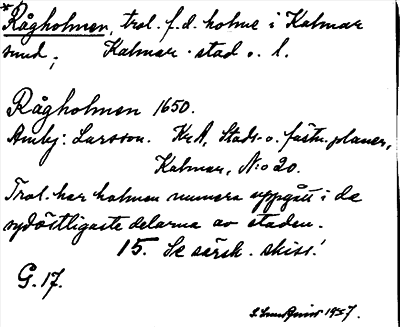 *Rågholmen, trol. f.d. holme i Kalmar
sund; Kalmar stad o. l.
Rågholmen 1650.
Larsson. KrA, Stads- o. fästn.planer,
Kalmar, N:o 20.
Trol. har holmen numera uppgått i de
sydöstligaste delarna av staden.
15. Se särsk. skiss!
G. 17.
1957.